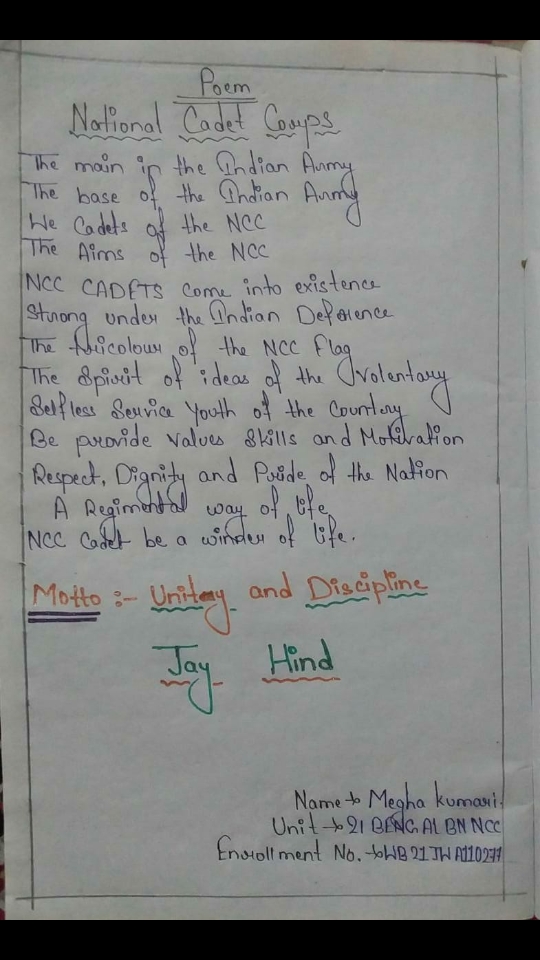 Poem
National Cadet Corps
The main in the Indian Army
The base of the Indian Army
We Cadets of the NCC
The Aims of the NCC
NCC CADETS come into existence
Strong under the Indian Deference
The tricolour of the NCC Flag
The Spirit of ideas of the Volentary
Selfless Service Youth of the Country
Be provide values skills and Motivation
Respect, Dignity and Pride of the Nation
A Regimental way of life
NCC Cadet be a winder of life.
Motto :- Unitey and Discipline
Jay Hind
Name → Megha kumari.
Unit → 21 BENGAL BN NCC
Enrollment No. → WB21JWA110277